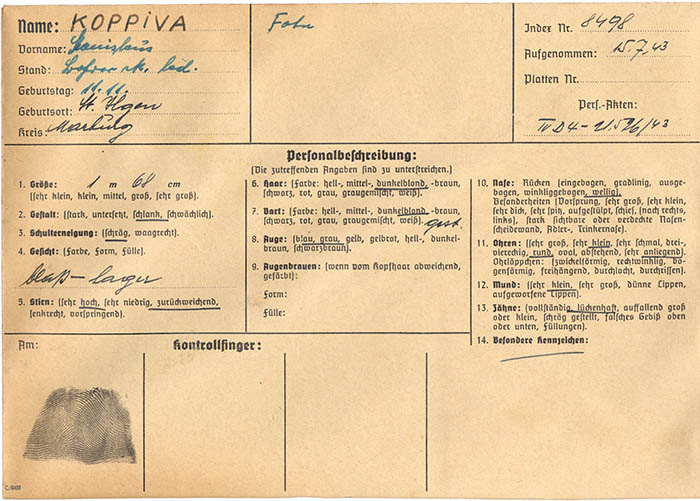 Name: KOPPIVA
Vorname: Stanislaus
Stand: led.
Geburtstag: 11.11.
Geburtsort: St. Ilgen
Kreis: Marburg
Foto
Index Nr. 8498
Aufgenommen: 15.7.43
Platten Nr.
Pers.-Akten:
IV D4 - 43
Personalbeschreibung:
(Die zutreffenden Angaben sind zu unterstreichen.)
1. Größe: 1 m 68 cm
(sehr klein, klein, mittel, groß, sehr groß).
2. Gestalt: (stark, untersetzt, schlank, schwächlich).
3. Schulterneigung: (schräg, waagrecht).
4. Gesicht: (Farbe, Form, Fülle).
blaß-
5. Stirn: (sehr hoch, sehr niedrig, zurückweichend,
senkrecht, vorspringend).
6. Haar: (Farbe: hell-, mittel-, dunkelblond, -braun,
schwarz, rot, grau, graugemischt, weiß).
7. Bart: (Farbe: hell-, mittel-, dunkelblond, -braun,
schwarz, rot, grau, graugemischt, weiß)
8. Auge: (blau, grau, gelb, gelbrot, hell-, dunkel-
braun, schwarzbraun).
9. Augenbrauen: (wenn vom Kopfhaar abweichend,
gefärbt):
Form:
Fülle:
10. Nase: Rücken (eingebogen, gradlinig, ausge-
bogen, winkliggebogen, wellig).
Besonderheiten (Vorsprung, sehr groß, sehr klein,
sehr dick, sehr spitz, aufgestülpt, schief, nach rechts,
links), stark sichtbare oder verdeckte Nasen-
scheidewand, Adler-, Trinkernase).
11. Ohren: (sehr groß, sehr klein, sehr schmal, drei-
viereckig, rund, oval, abstehend, sehr anliegend).
Ohrläppchen: (zwickelförmig, rechtwinklig, bo-
genförmig, freihängend, durchlocht, durchrissen).
12. Mund: (sehr klein, sehr groß, dünne Lippen,
aufgeworfene Lippen).
13. Zähne: (vollständig, lückenhaft, auffallend groß
oder klein, schräg gestellt, falsches Gebiß oben
oder unten, Füllungen).
14. Besondere Kennzeichen:
Am:
Kontrollfinger: